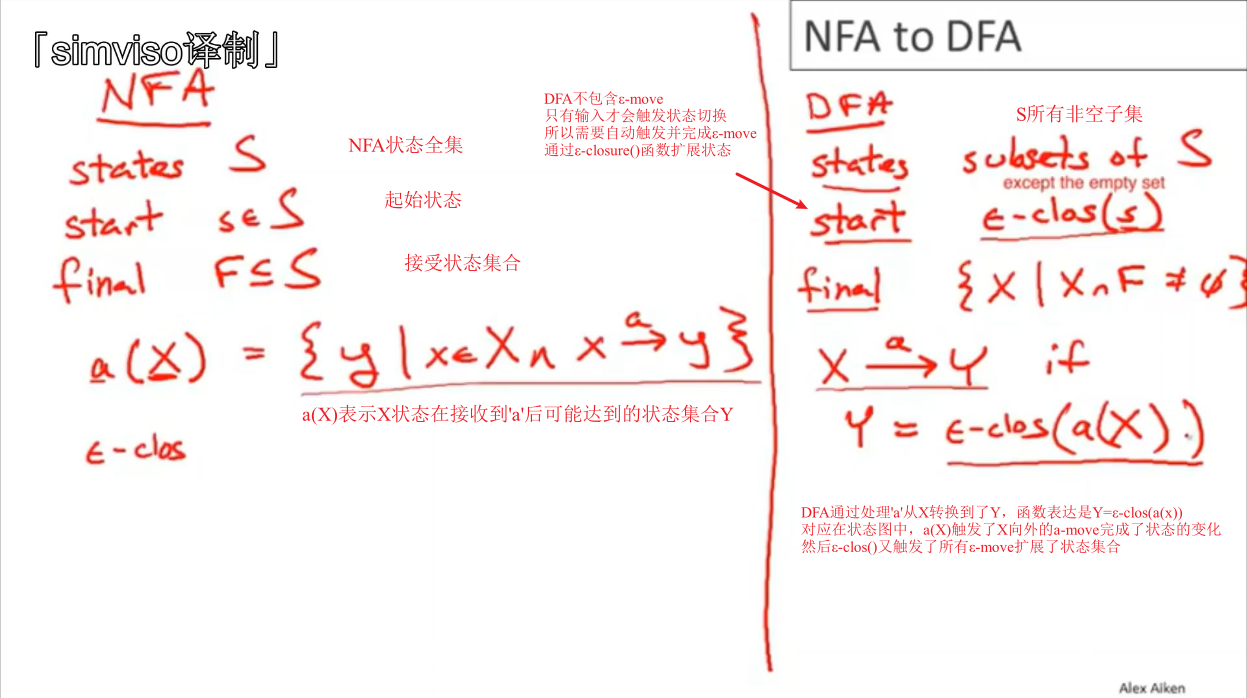 「simviso译制」
NFA
states S
NFA状态全集
start s∈S
起始状态
final F⊆S
接受状态集合
a(X) = {y | x∈X ∩ x →a y}
a(X)表示X状态在接收到'a'后可能达到的状态集合Y
ε-clos
DFA不包含ε-move
只有输入才会触发状态切换
所以需要自动触发并完成ε-move
通过ε-closure()函数扩展状态
NFA to DFA
DFA
S所有非空子集
states subsets of S
except the empty set
start ε-clos(s)
final {X | X∩F ≠ ϕ}
X →a Y if
Y = ε-clos(a(X))
DFA通过处理'a'从X转换到了Y，函数表达是Y=ε-clos(a(x))
对应在状态图中，a(X)触发了X向外的a-move完成了状态的变化
然后ε-clos()又触发了所有ε-move扩展了状态集合
Alex Aiken